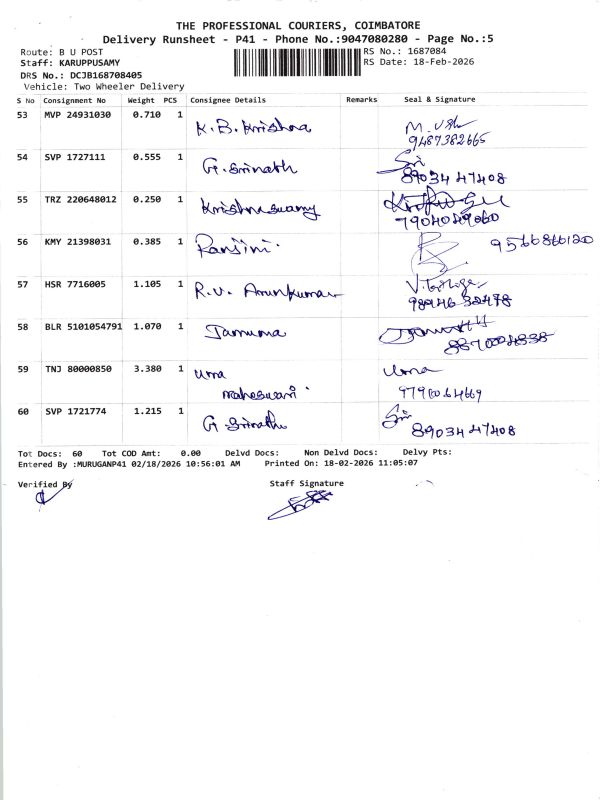 THE PROFESSIONAL COURIERS, COIMBATORE
Delivery Runsheet - P41 - Phone No.:9047080280 - Page No.:5
Route: B U POST
RS No.: 1687084
Staff: KARUPPUSAMY
RS Date: 18-Feb-2026
DRS No.: DCJB168708405
Vehicle: Two Wheeler Delivery
S No Consignment No Weight PCS Consignee Details Remarks Seal & Signature
53 MVP 24931030 0.710 1 K.B. Krishna
9487382665
54 SVP 1727111 0.555 1 G. Srinath Sri
89034 47408
55 TRZ 220648012 0.250 1 Krishnaswamy
7904049060
56 KMY 21398031 0.385 1 Ranjini. 9566866120
57 HSR 7716005 1.105 1 R.V. Arunkumar
98946 32478
58 BLR 5101054791 1.070 1 Jamuna
59 TNJ 80000850 3.380 1 uma Uma
maheswari
60 SVP 1721774 1.215 1 G. Srinath Sri
89034 47408
Tot Docs: 60 Tot COD Amt: 0.00 Delvd Docs: Non Delvd Docs: Delvy Pts:
Entered By :MURUGANP41 02/18/2026 10:56:01 AM Printed On: 18-02-2026 11:05:07
Verified By Staff Signature